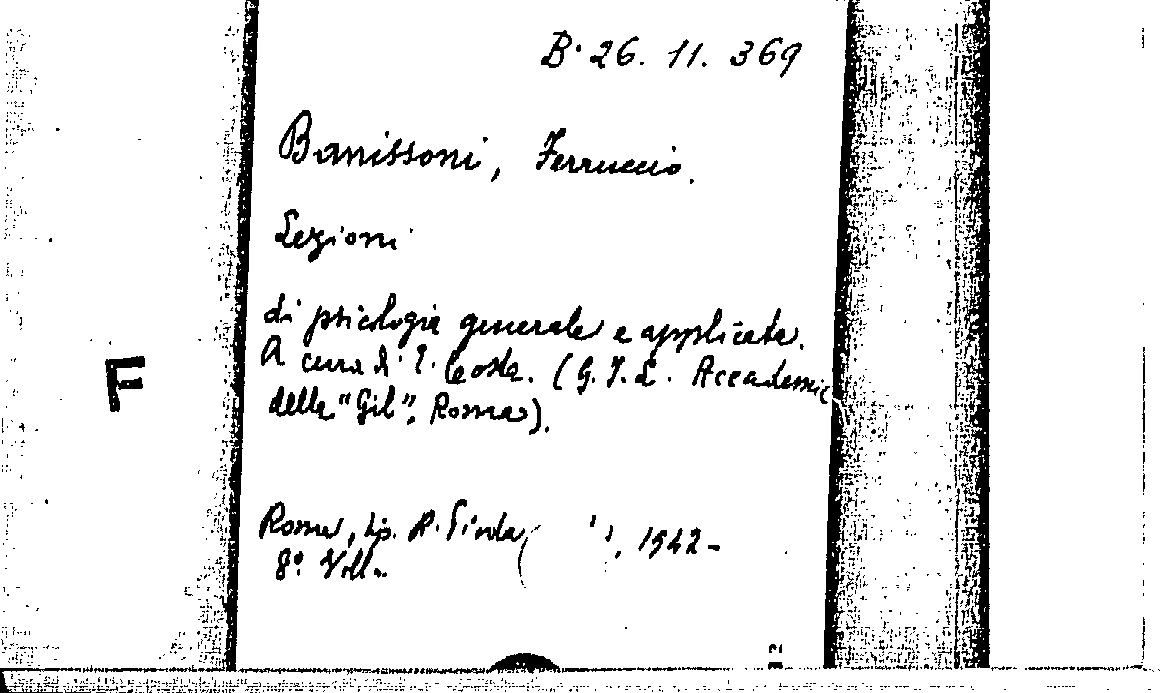 B. 26. 11. 369
Banissoni, Ferruccio.
Lezioni
di psicologia generale e applicata.
A cura di (G.I.L. Accademia
F
della "Gil", Roma).
Roma, tip. R. , 1942 -
8°. Voll.